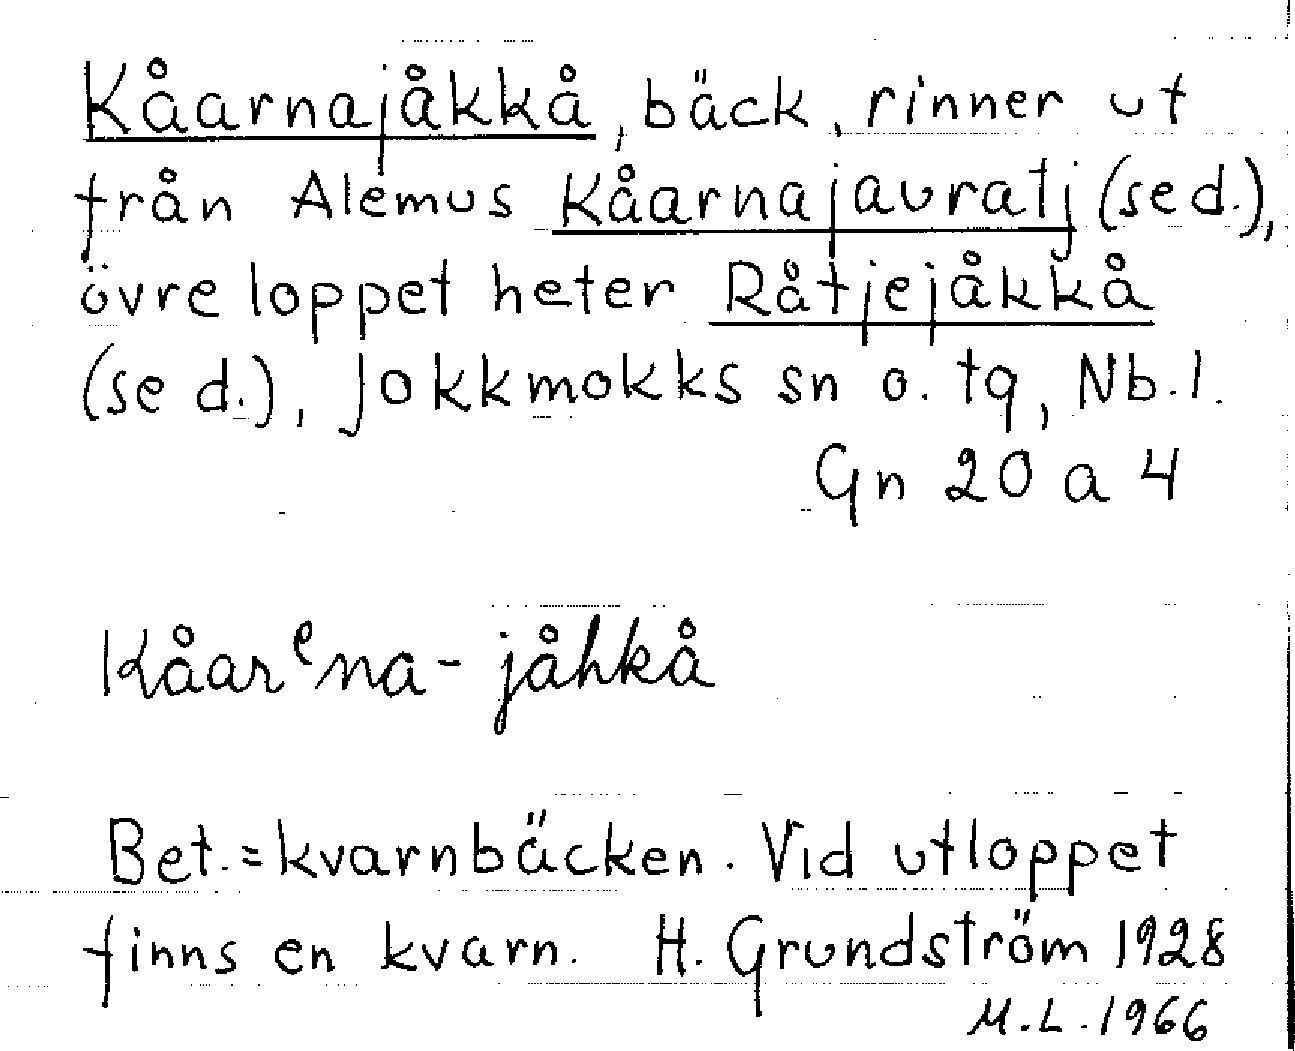 Kåarnajåkkå, bäck, rinner ut
från Alemus Kåarnajauratj (se d.),
övre loppet heter Råtjejåkkå
(se d.), Jokkmokks sn o. tg, Nb.l.
Gn 20 a 4
Kåarᵉna-jåhkå
Bet.=kvarnbäcken. Vid utloppet
finns en kvarn. H. Grundström 1928
M.L.1966